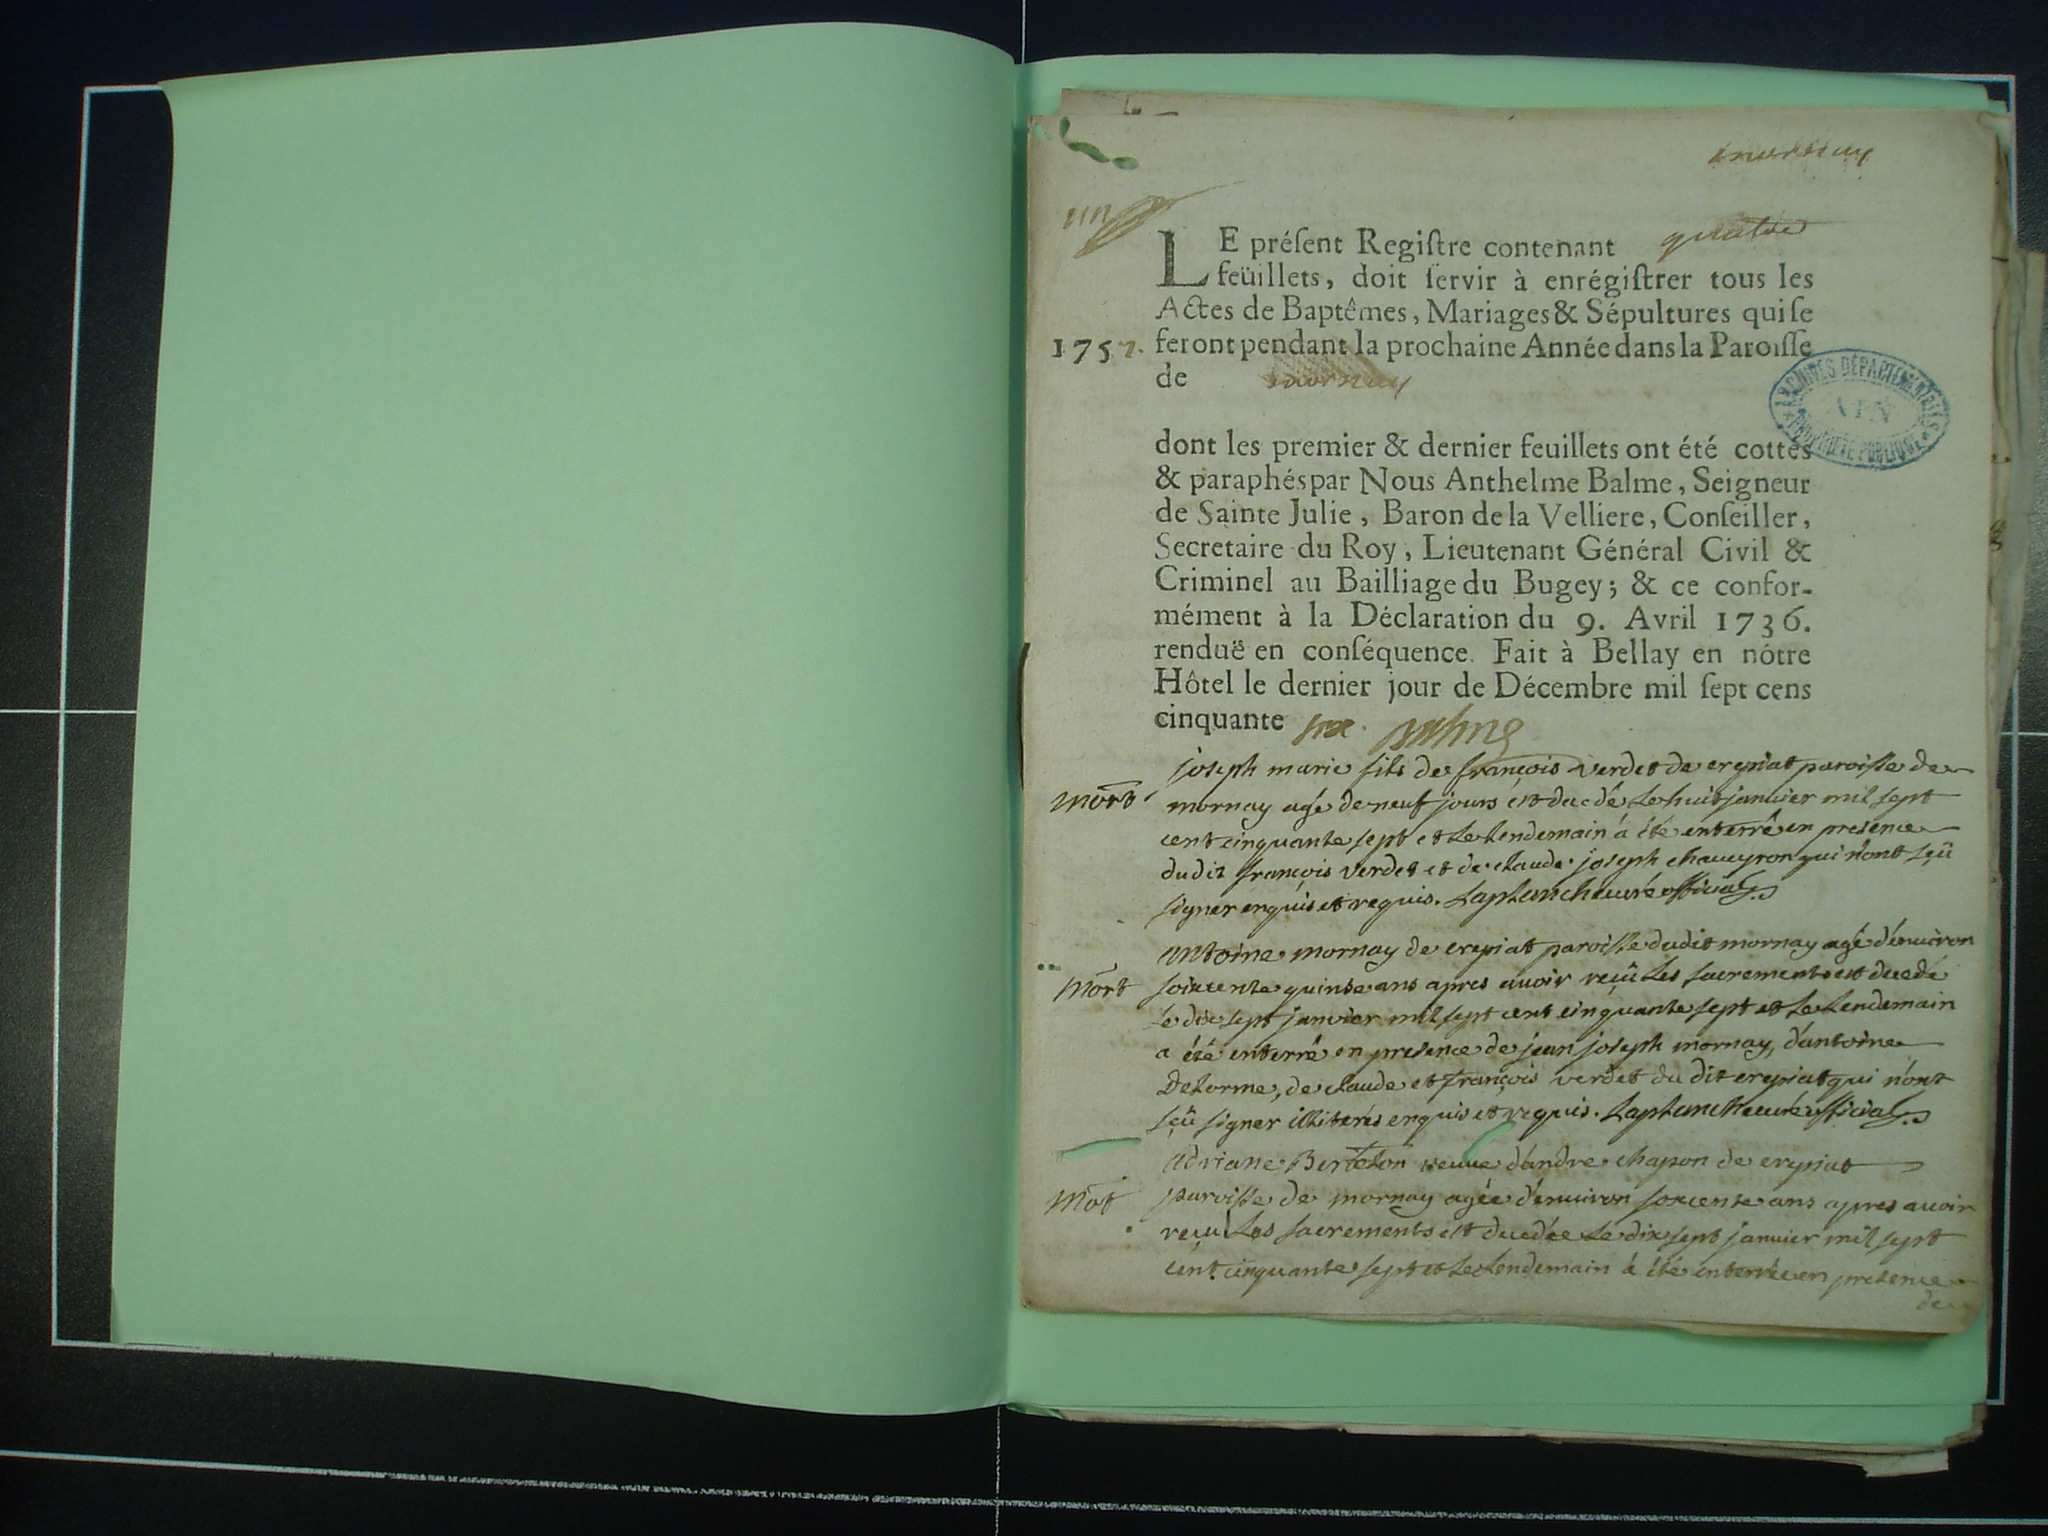 mornay
un
LE présent Registre contenant quatre
feüillets, doit servir à enrégistrer tous les
Actes de Baptêmes, Mariages & Sépultures qui se
1757. feront pendant la prochaine Année dans la Paroisse
de mornay
ARCHIVES DÉPARTEMENTALES
AIN
PROPRIÉTÉ PUBLIQUE
dont les premier & dernier feuillets ont été cottés
& paraphés par Nous Anthelme Balme, Seigneur
de Sainte Julie, Baron de la Velliere, Conseiller,
Secretaire du Roy, Lieutenant Général Civil &
Criminel au Bailliage du Bugey; & ce confor-
mément à la Déclaration du 9. Avril 1736.
renduë en conséquence. Fait à Bellay en nôtre
Hôtel le dernier jour de Décembre mil sept cens
cinquante six. Balme
joseph marie fils de françois verdet de crepiat paroisse de
mort mornay agé de neuf jours est decedé le huit janvier mil sept
cent cinquante sept et le lendemain à été enterré en presence
dudit françois verdet et de claude joseph chaveyron qui n'ont sçû
signer enquis et requis. Laplanche curé official
antoine mornay de crepiat paroisse dudit mornay agé d'environ
mort soixente quinse ans apres avoir reçû les sacrements est decedé
le dix sept janvier mil sept cent cinquante sept et le lendemain
a été enterré en presence de jean joseph mornay, d'antoine
Delorme, de claude et françois verdet du dit crepiat qui n'ont
sçû signer illiterés enquis et requis. Laplanche curé official
adriane Bertelon veuve d'andre chapon de crepiat
mort paroisse de mornay agée d'environ soixcente ans apres avoir
reçu les sacrements est decedée le dix sept janvier mil sept
cent cinquante sept et le lendemain à été enterrée en presence
de